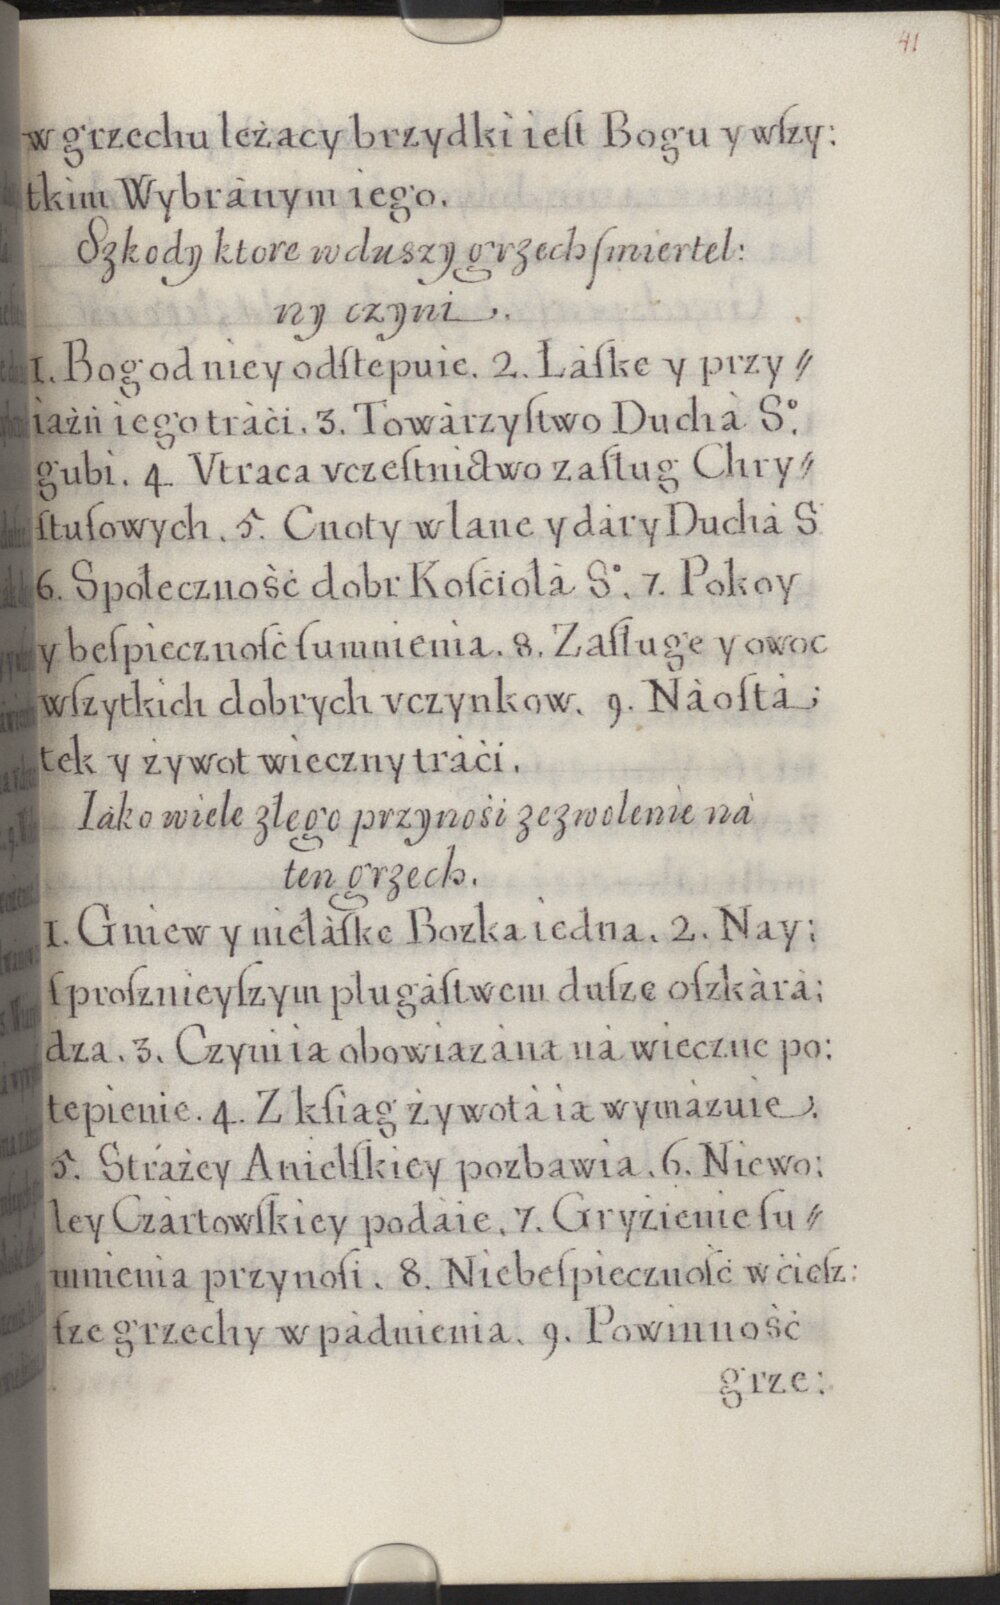 41
w grzechu leżacy brzydki ieſt Bogu y wſzy:
tkim Wybránym iego.
Szkody ktore w duszy grzech ſmiertel:
ny czyni.
1. Bog od niey odſtepuie. 2. Łáſke y przy〃
iaźń iego tráći. 3. Towárzyſtwo Duchá S°.
gubi. 4. Vtraca vczeſtnictwo zaſług Chry〃
ſtuſowych. 5. Cnoty wlane y dáry Duchá S
6. Społeczność dobr Kośćiołá S°. 7. Pokoy
y beſpiecznoſć ſumnienia. 8. Zaſługe y owoc
wſzytkich dobrych vczynkow. 9. Náoſtá:
tek y żywot wieczny tráći.
Iáko wiele złego przynośi zezwolenie ná
ten grzech.
1. Gniew y niełáſke Bozka iedna. 2. Nay:
ſproſznieyſzym plugáſtwem duſze oſzkárá:
dza. 3. Czyni ia obowiazána ná wieczne po:
tepienie. 4. Z kſiag żywotá ia wymázuie.
5. Stráżey Anielſkiey pozbawia. 6. Niewo:
ley Czártowſkiey podáie. 7. Gryźienie ſu〃
mnienia przynoſi. 8. Niebeſpiecznoſć w ćieſz:
ſze grzechy wpádnienia. 9. Powinność
grze: